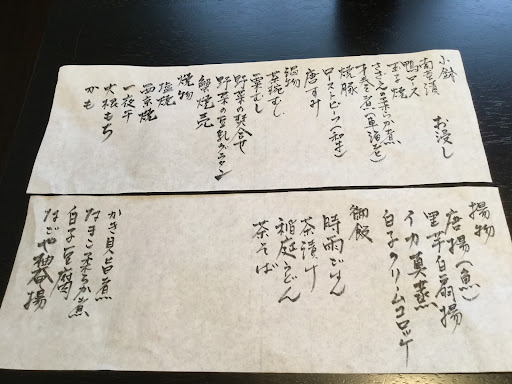 小鉢
お浸し
南蛮漬
鴨ロース
玉子焼
さざえの柔らか煮
焼豚
ローストビーフ(和牛)
唐すみ
鍋物
茶碗むし
栗むし
野菜の炊合せ
野菜の豆乳グラタン
蟹焼売
焼物
塩焼
西京焼
一夜干
大根もち
かも
揚物
唐揚(魚)
里芋白扇揚
イカ真蒸
白子のクリームコロッケ
御飯
時雨ごはん
茶漬け
稲庭うどん
茶そば
かき貝旨煮
なまこ柔らか煮
白子豆腐